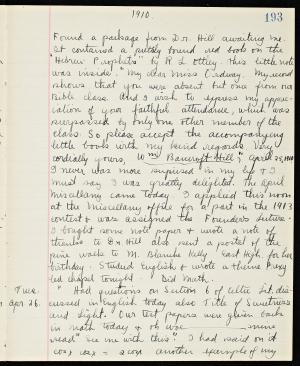 1910.
193
Found a package from Dr. Hill awaiting me.
It contained a prettily bound red book on the
"Hebrew Prophets" by R. L. Ottley. This little note
was inside. "My dear Miss Ordway. My record
shows that you were absent but one from our
Bible class. And I wish to express my appre-
ciation of your faithful attendance, which was
surpassed by only one other member of the
class. So please accept the accompanying
little book with my kind regards. Very
cordially yours, Wm Bancroft Hill." April 25, 1910
I never was more surprised in my life & I
must say I was greatly delighted. The April
Miscellany came today. I applied this noon
at the Miscellany office for a part in the 1913
contest & was assigned the Founder's lecture.
I bought some note paper & wrote a note of
thanks to Dr Hill also sent a postal of the
pine walk to M. Blanche Kelly East High, for her
birthday. Studied English & wrote a theme. Prexy
led chapel tonight. Did Math.
Tue.
Apr 26.
Had questions on Section 6 of Celtic Lit. dis-
cussed in English today also Title of Sweetness
and Light. Our test papers were given back
in math today & oh woe mine
read "see me with this". I had said on it
cos x cos x = 2 cos x another example of my